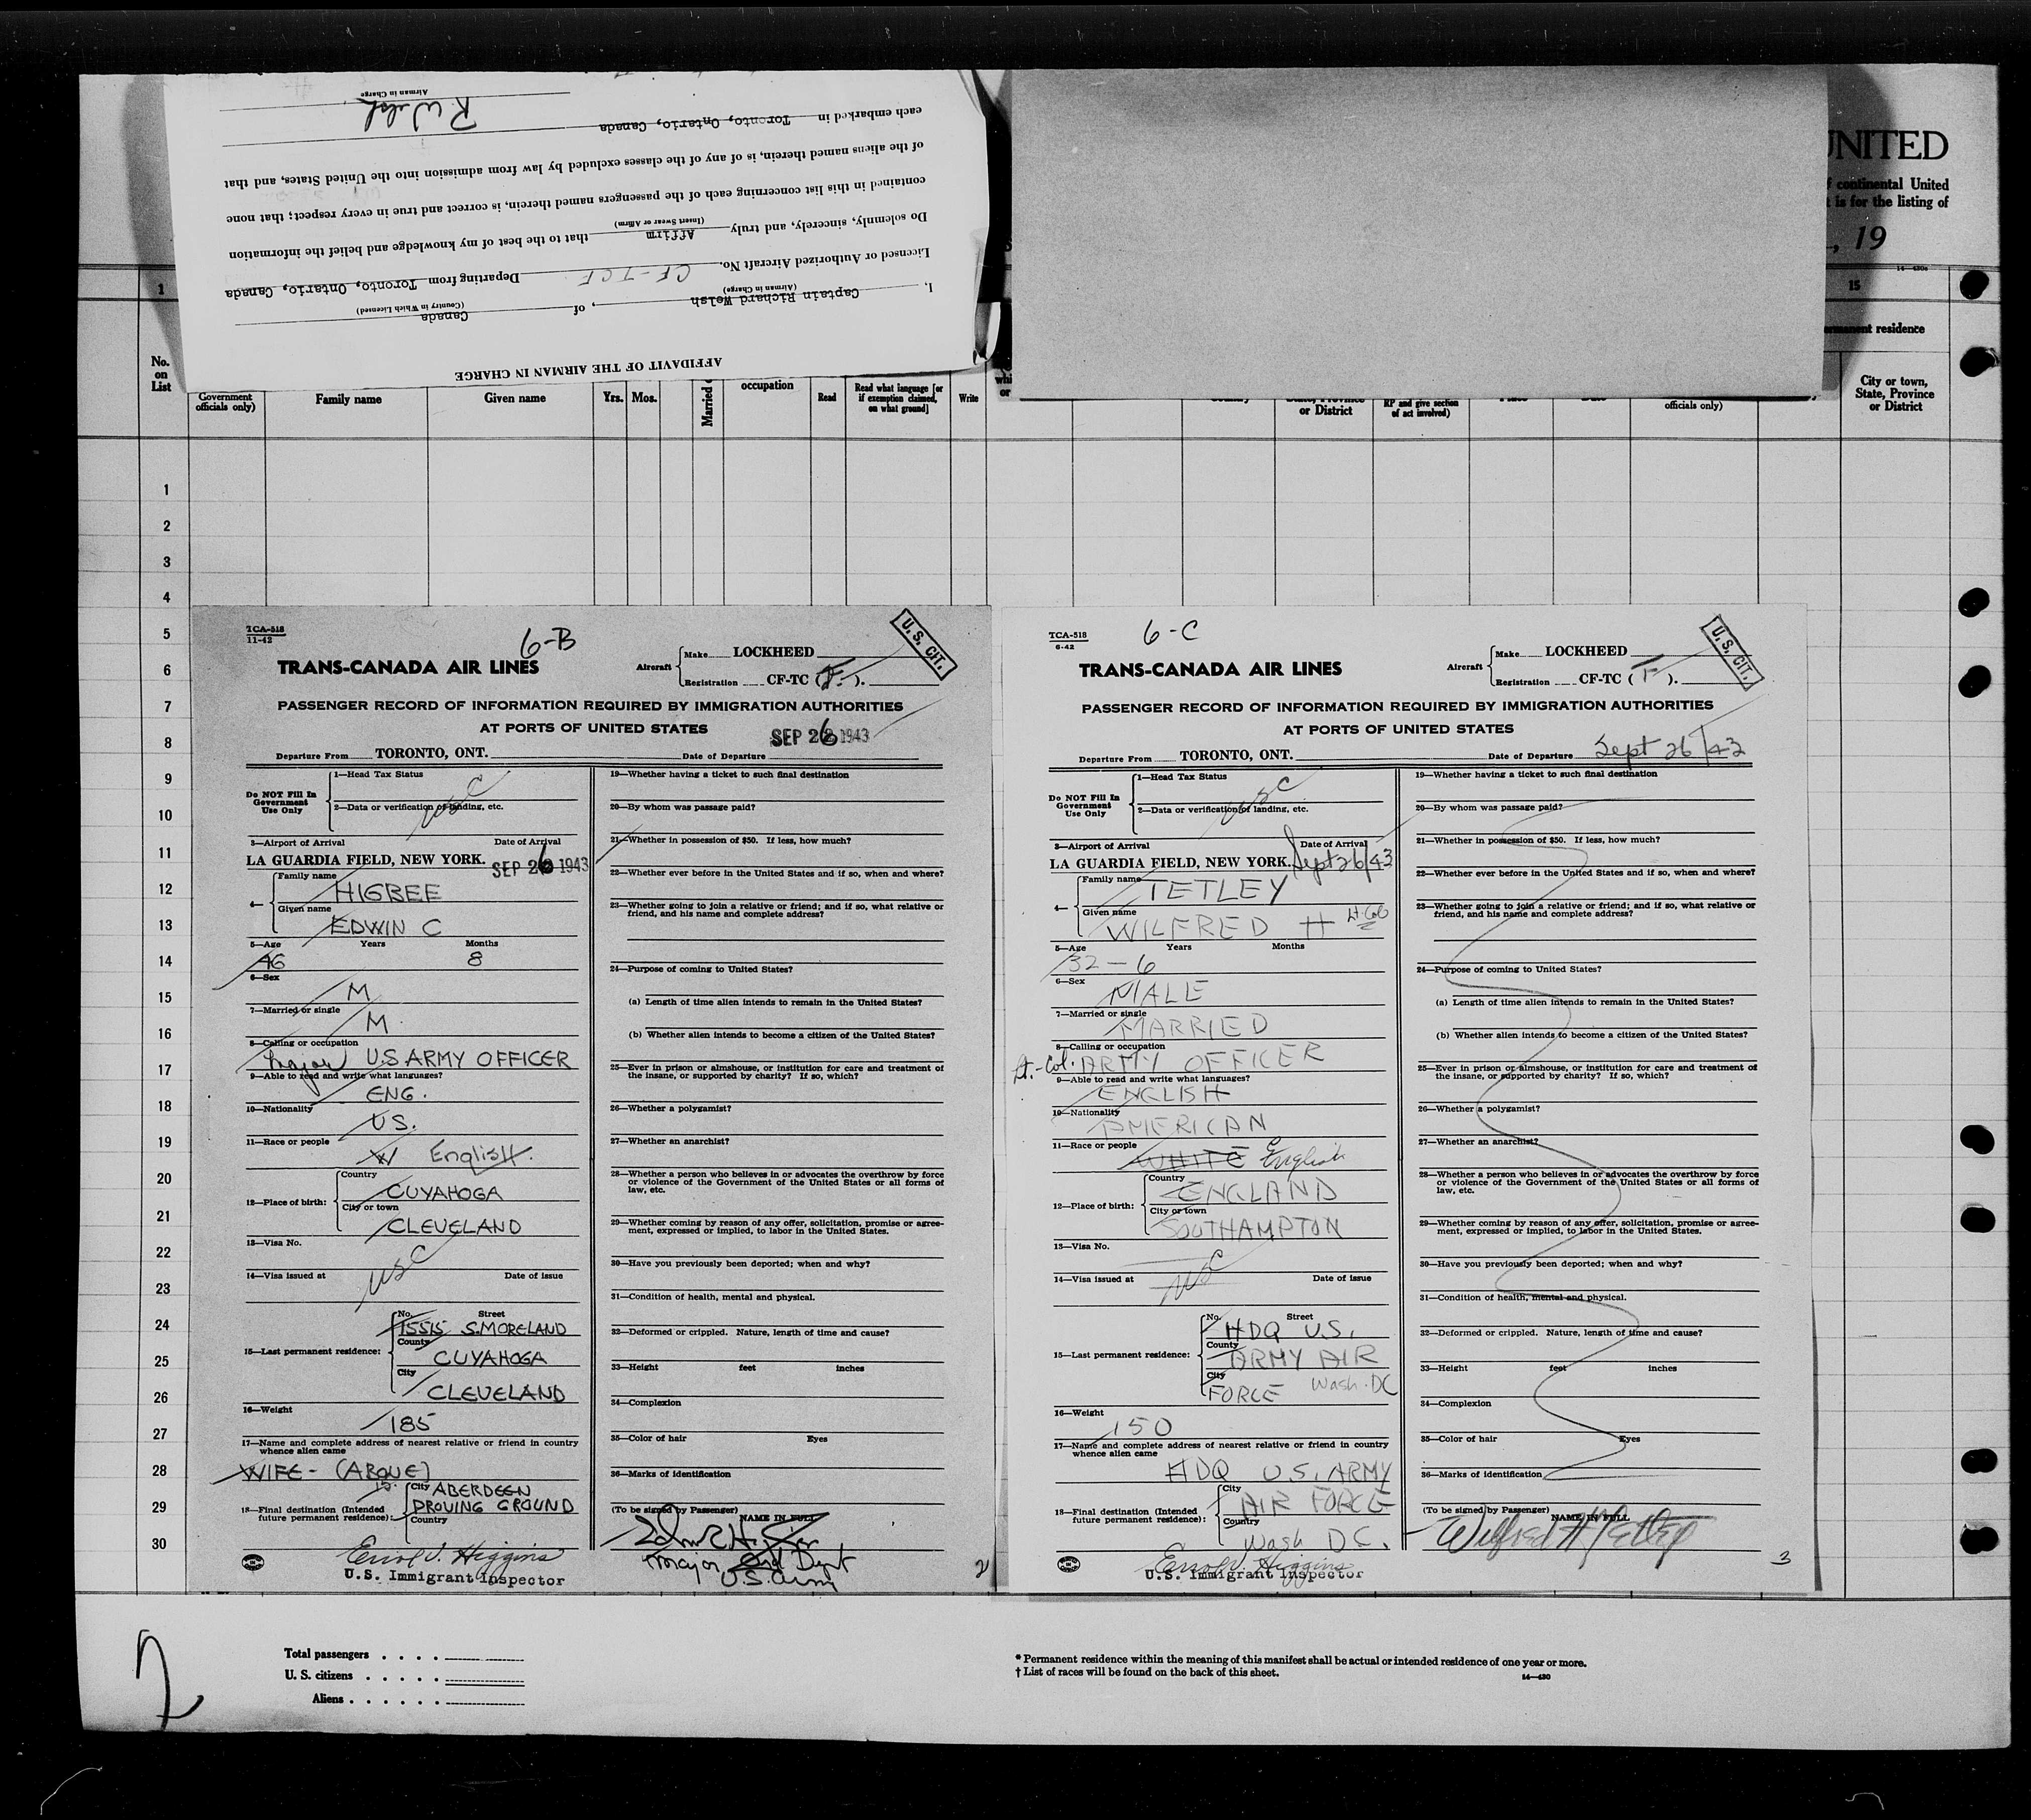 AFFIDAVIT OF THE AIRMAN IN CHARGE
I, Captain Richard Welsh, of Canada
(Airman in Charge) (Country in Which Licensed)
Licensed or Authorized Aircraft No. CF-TCF Departing from Toronto, Ontario, Canada
Do solemnly, sincerely, and truly Affirm that to the best of my knowledge and belief the information
(Insert Swear or Affirm)
contained in this list concerning each of the passengers named therein, is correct and true in every respect; that none
of the aliens named therein, is of any of the classes excluded by law from admission into the United States, and that
each embarked in Toronto, Ontario, Canada
R Welsh
Airman in Charge
UNITED
continental United
is for the listing of
, 19
14—430a
1
15
permanent residence
No.
on
List
Government
officials only)
Family name
Given name
Yrs. Mos.
Married
occupation
Read
Read what language [or
if exemption claimed,
on what ground]
Write
or District
RP and give section
of act involved)
officials only)
City or town,
State, Province
or District
1
2
3
4
5
6
7
8
9
10
11
12
13
14
15
16
17
18
19
20
21
22
23
24
25
26
27
28
29
30
TCA-518
11-42
6-B
U. S. CIT.
TRANS-CANADA AIR LINES
Aircraft Make LOCKHEED
Registration CF-TC (F).
PASSENGER RECORD OF INFORMATION REQUIRED BY IMMIGRATION AUTHORITIES
AT PORTS OF UNITED STATES
SEP 26 1943
Departure From TORONTO, ONT. Date of Departure
Do NOT Fill In
Government
Use Only
1—Head Tax Status
USC
2—Data or verification of landing, etc.
3—Airport of Arrival Date of Arrival
LA GUARDIA FIELD, NEW YORK. SEP 26 1943
4— Family name
HIGBEE
Given name
EDWIN C
5—Age Years Months
46 8
6—Sex
M
7—Married or single
M
8—Calling or occupation
Major U.S ARMY OFFICER
9—Able to read and write what languages?
ENG.
10—Nationality
US.
11—Race or people
W English.
12—Place of birth: Country
CUYAHOGA
City or town
CLEVELAND
13—Visa No.
USC
14—Visa issued at Date of issue
15—Last permanent residence: No. Street
15515 S.MORELAND
County
CUYAHOGA
City
CLEVELAND
16—Weight
185
17—Name and complete address of nearest relative or friend in country
whence alien came
WIFE - (ABOVE)
18—Final destination (Intended
future permanent residence): City ABERDEEN
PROVING GROUND
Country
Errol V. Higgins
U.S. Immigrant Inspector
19—Whether having a ticket to such final destination
20—By whom was passage paid?
21—Whether in possession of $50. If less, how much?
22—Whether ever before in the United States and if so, when and where?
23—Whether going to join a relative or friend; and if so, what relative or
friend, and his name and complete address?
24—Purpose of coming to United States?
(a) Length of time alien intends to remain in the United States?
(b) Whether alien intends to become a citizen of the United States?
25—Ever in prison or almshouse, or institution for care and treatment of
the insane, or supported by charity? If so, which?
26—Whether a polygamist?
27—Whether an anarchist?
28—Whether a person who believes in or advocates the overthrow by force
or violence of the Government of the United States or all forms of
law, etc.
29—Whether coming by reason of any offer, solicitation, promise or agree-
ment, expressed or implied, to labor in the United States.
30—Have you previously been deported; when and why?
31—Condition of health, mental and physical.
32—Deformed or crippled. Nature, length of time and cause?
33—Height feet inches
34—Complexion
35—Color of hair Eyes
36—Marks of identification
(To be signed by Passenger)
NAME IN FULL
Major Ord Dept
U.S. Army
2
TCA-518
6-42
6-C
U. S. CIT.
TRANS-CANADA AIR LINES
Aircraft Make LOCKHEED
Registration CF-TC (F).
PASSENGER RECORD OF INFORMATION REQUIRED BY IMMIGRATION AUTHORITIES
AT PORTS OF UNITED STATES
Departure From TORONTO, ONT. Date of Departure Sept 26/43
Do NOT Fill In
Government
Use Only
1—Head Tax Status
USC
2—Data or verification of landing, etc.
3—Airport of Arrival Date of Arrival
LA GUARDIA FIELD, NEW YORK. Sept 26/43
4— Family name
TETLEY
Given name
WILFRED H Lt. Col
5—Age Years Months
32-6
6—Sex
MALE
7—Married or single
MARRIED
8—Calling or occupation
Lt.-Col. ARMY OFFICER
9—Able to read and write what languages?
ENGLISH
10—Nationality
AMERICAN
11—Race or people
WHITE English
12—Place of birth: Country
ENGLAND
City or town
SOUTHAMPTON
13—Visa No.
USC
14—Visa issued at Date of issue
15—Last permanent residence: No. Street
HDQ U.S.
County
ARMY AIR
City
FORCE Wash. DC
16—Weight
150
17—Name and complete address of nearest relative or friend in country
whence alien came
HDQ U.S. ARMY
18—Final destination (Intended
future permanent residence): City
AIR FORCE
Country
Wash D.C.
Errol V. Higgins
U.S. Immigrant Inspector
19—Whether having a ticket to such final destination
20—By whom was passage paid?
21—Whether in possession of $50. If less, how much?
22—Whether ever before in the United States and if so, when and where?
23—Whether going to join a relative or friend; and if so, what relative or
friend, and his name and complete address?
24—Purpose of coming to United States?
(a) Length of time alien intends to remain in the United States?
(b) Whether alien intends to become a citizen of the United States?
25—Ever in prison or almshouse, or institution for care and treatment of
the insane, or supported by charity? If so, which?
26—Whether a polygamist?
27—Whether an anarchist?
28—Whether a person who believes in or advocates the overthrow by force
or violence of the Government of the United States or all forms of
law, etc.
29—Whether coming by reason of any offer, solicitation, promise or agree-
ment, expressed or implied, to labor in the United States.
30—Have you previously been deported; when and why?
31—Condition of health, mental and physical.
32—Deformed or crippled. Nature, length of time and cause?
33—Height feet inches
34—Complexion
35—Color of hair Eyes
36—Marks of identification
(To be signed by Passenger)
NAME IN FULL
Wilfred H Tetley
3
2
Total passengers . . . .
U. S. citizens . . . . .
Aliens . . . . . .
* Permanent residence within the meaning of this manifest shall be actual or intended residence of one year or more.
† List of races will be found on the back of this sheet.
14—430